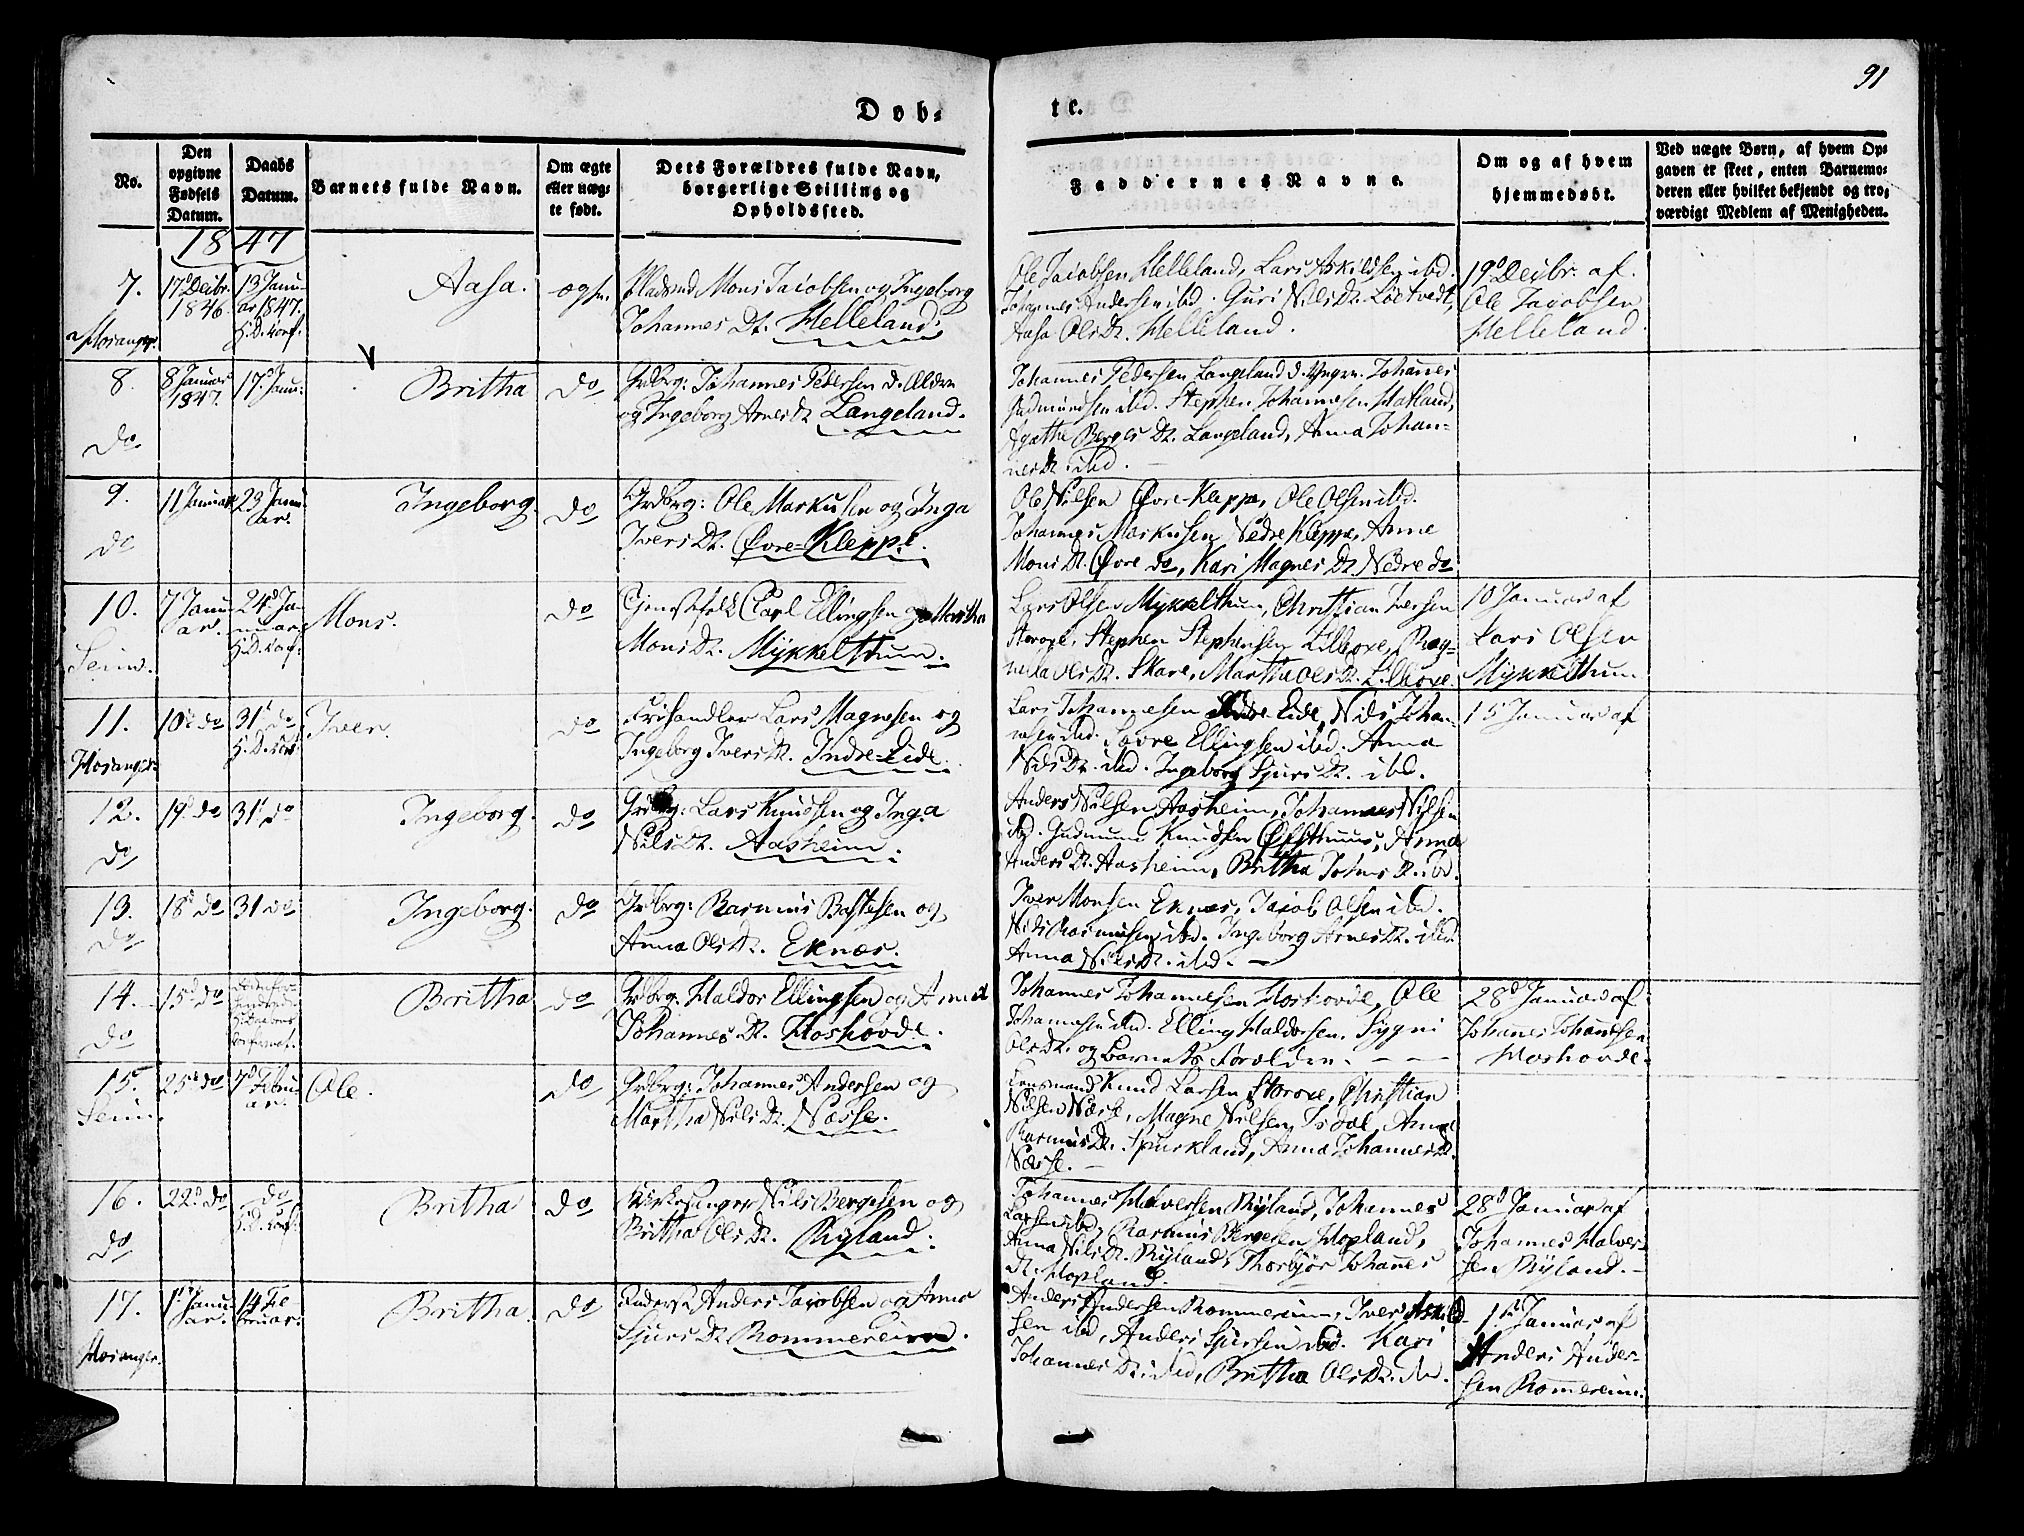 91
Døb-
te.
No.
Den
opgivne
Fødsels
Datum.
Daabs
Datum.
Barnets fulde Navn.
Om ægte
eller uæg-
te født.
Dets Forældres fulde Navn,
borgerlige Stilling og
Opholdssted.
Faddernes Navne.
Om og af hvem
hjemmedøbt.
Ved uægte Børn, af hvem Op-
gaven er skeet, enten Barnemo-
deren eller hvilket bekjendt og tro-
værdigt Medlem af Menigheden.
1847
7.
Hosanger.
17d Decbr.
1846.
13 Janu-
ar 1847.
H.D. conf.
Aasa.
ægte.
Mons Jacobsen og Ingeborg
Johannes Dt. Helleland.
Ole Jacobsen Helleland, Lars Askildsen ibd.
Johannes Andersen ibd. Guri Nils Dt. Løetvedt,
Aasa Ols Dt. Helleland.
19d Decbr. af
Ole Jacobsen
Helleland.
8.
do
8 Januar
1847.
17d Janu:
Britha
do
Grdbrg: Johannes Pedersen d. Ældre
og Ingeborg Arnes Dt. Langeland.
Johannes Pedersen Langeland d. Yngre. Johannes
Gudmundsen ibd. Stephen Johannesen Hatland,
Agatha Berges Dt. Langeland, Anna Johan-
nes Dt. ibd.
9.
do
11 Januar
23 Janu-
ar.
Ingeborg.
do
Grdbrg: Ole Markusen og Inga
Ivers Dt. Øvre-Kleppe.
Ole Nilsen Øvre-Kleppe, Ole Olsen ibd.
Johannes Markusen Nedre Kleppe, Anne
Mons Dt. Øvre do, Kari Magnes Dt. Nedre do
10.
Seim.
7 Janu-
ar.
24d Ja-
nuar
H.D. conf.
Mons.
do
Tjenestefolk Carl Ellingsen og Martha
Mons Dt. Mykkelthun.
Lars Olsen Mykkelthun, Christian Iversen
Storoxe, Stephen Stephensen Lilleoxe, Rag-
nilda Ols Dt. Skare, Martha Ols Dt. Lilleoxe.
10 Januar af
Lars Olsen
Mykkelthun
11.
Hosanger.
10d do
31d do
H.D. conf.
Iver.
do
Frihandler Lars Magnesen og
Ingeborg Ivers Dt. Indre-Eide.
Lars Johannesen Indre Eide, Nils Johan-
nesen ibd. Sjovre Ellingsen ibd. Anna
Nils Dt. ibd. Ingeborg Sjurs Dt. ibd.
15 Januar af
12.
do
19d do
31d do
Ingeborg.
do
Grdbrg: Lars Knudsen og Inga
Nils Dt. Aasheim.
Anders Nilsen Aasheim, Johannes Nilsen
ibd. Gudmund Knudsen Øffsthuus, Anna
Anders Dt. Aasheim, Britha Johns Dt. Ibd.
13.
do
18d do
31 do
Ingeborg.
do
Grdbrg: Rasmus Bastesen og
Anna Ols Dt. Eknæs.
Iver Monsen Eknæs, Jacob Olsen ibd.
Nils Rasmusen ibd. Ingeborg Arnes Dt. ibd.
Anna Nils Dt. ibd.
14.
do
15d do
Britha
do
Grdbrg: Haldor Ellingsen og Anna
Johannes Dt. Hoshovde.
Johannes Johannesen Hoshovde, Ole
Johannesen ibd. Elling Haldorsen. Sygni
Ols Dt. og Barnets Forældre.
28d Januar af
Johannes Johannesen
Hoshovde.
15.
Seim.
25d do
7d Febru-
ar.
Ole.
do
Grdbrg: Johannes Andersen og
Martha Nils Dt. Næsse.
Lensmand Knud Larsen Storoxe, Christian
Nilsen Næsse, Magne Nilsen Isdal, Anna
Rasmus Dt. Spurkland, Anna Johannes Dt.
Næsse.
16.
do
22d do
do
H.D. conf.
Britha
do
Kirkesanger Nils Bergesen og
Britha Ols Dt. Ryland.
Johannes Halvorsen Ryland, Johannes
Larsen ibd, Rasmus Bergesen Hopland,
Anna Nils Dt. Ryland, Thorbjør Johannes
Dt. Hopland.
28d Januar af
Johannes Halvor-
sen Ryland.
17.
Hosanger.
1ste Janu-
ar.
14 Fe-
bruar.
Britha.
do
Anders Jacobsen og Anna
Sjurs Dt. Rommereim.
Anders Andersen Rommereim, Iver Askild-
sen ibd, Anders Sjursen ibd. Kari
Johannes Dt. ibd, Britha Ols Dt. ibd.
1ste Januar af
Anders Ander-
sen Romereim.